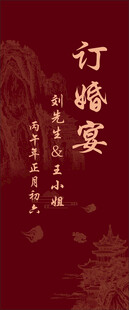 订婚宴
刘先生&王小姐
丙午年正月初六